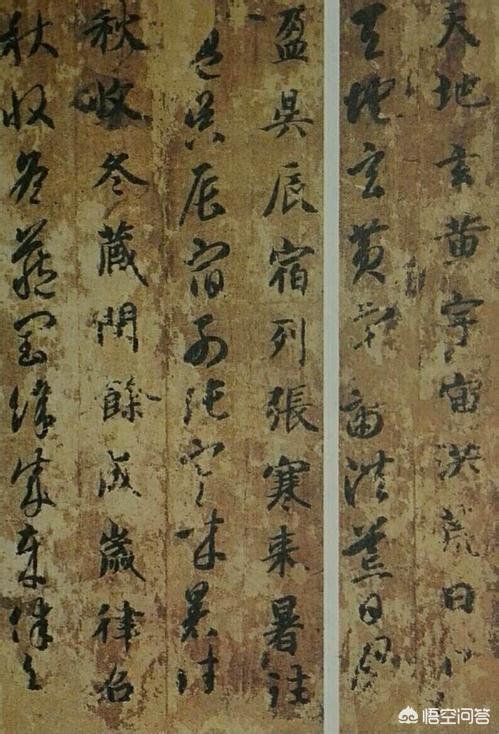 天地玄黄宇宙洪荒日月
天地玄黄宇宙洪荒日月
盈昃辰宿列張寒来暑往
盈昃辰宿列張寒来暑往
秋收冬藏閏餘成歲律召
秋收冬藏閏餘成歲律召
悟空问答